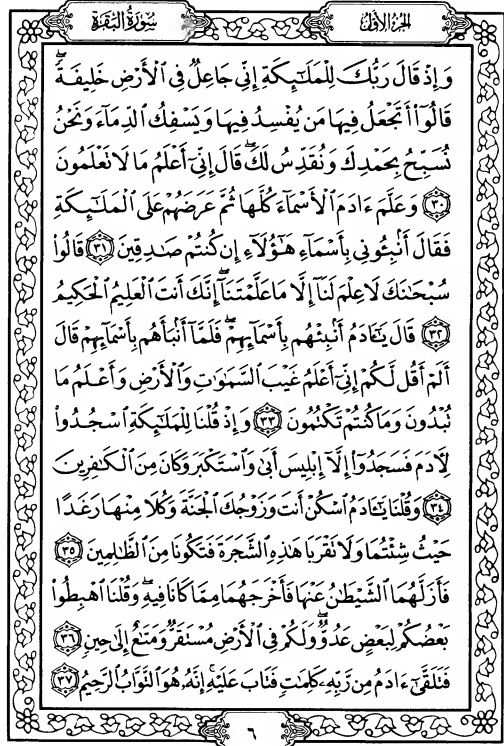 سُورَةُ الْبَقَرَةِ
الجُزْءُ الأَوَّلُ
وَإِذْ قَالَ رَبُّكَ لِلْمَلَـٰٓئِكَةِ إِنِّي جَاعِلٌ فِي ٱلْأَرْضِ خَلِيفَةً ۖ
قَالُوٓا۟ أَتَجْعَلُ فِيهَا مَن يُفْسِدُ فِيهَا وَيَسْفِكُ ٱلدِّمَآءَ وَنَحْنُ
نُسَبِّحُ بِحَمْدِكَ وَنُقَدِّسُ لَكَ ۖ قَالَ إِنِّىٓ أَعْلَمُ مَا لَا تَعْلَمُونَ
﴿٣٠﴾ وَعَلَّمَ ءَادَمَ ٱلْأَسْمَآءَ كُلَّهَا ثُمَّ عَرَضَهُمْ عَلَى ٱلْمَلَـٰٓئِكَةِ
فَقَالَ أَنۢبِـُٔونِى بِأَسْمَآءِ هَـٰٓؤُلَآءِ إِن كُنتُمْ صَـٰدِقِينَ ﴿٣١﴾ قَالُوا۟
سُبْحَـٰنَكَ لَا عِلْمَ لَنَآ إِلَّا مَا عَلَّمْتَنَآ ۖ إِنَّكَ أَنتَ ٱلْعَلِيمُ ٱلْحَكِيمُ
﴿٣٢﴾ قَالَ يَـٰٓـَٔادَمُ أَنۢبِئْهُم بِأَسْمَآئِهِمْ ۖ فَلَمَّآ أَنۢبَأَهُم بِأَسْمَآئِهِمْ قَالَ
أَلَمْ أَقُل لَّكُمْ إِنِّىٓ أَعْلَمُ غَيْبَ ٱلسَّمَـٰوَٰتِ وَٱلْأَرْضِ وَأَعْلَمُ مَا
تُبْدُونَ وَمَا كُنتُمْ تَكْتُمُونَ ﴿٣٣﴾ وَإِذْ قُلْنَا لِلْمَلَـٰٓئِكَةِ ٱسْجُدُوا۟
لِـَٔادَمَ فَسَجَدُوٓا۟ إِلَّآ إِبْلِيسَ أَبَىٰ وَٱسْتَكْبَرَ وَكَانَ مِنَ ٱلْكَـٰفِرِينَ
﴿٣٤﴾ وَقُلْنَا يَـٰٓـَٔادَمُ ٱسْكُنْ أَنتَ وَزَوْجُكَ ٱلْجَنَّةَ وَكُلَا مِنْهَا رَغَدًا
حَيْثُ شِئْتُمَا وَلَا تَقْرَبَا هَـٰذِهِ ٱلشَّجَرَةَ فَتَكُونَا مِنَ ٱلظَّـٰلِمِينَ ﴿٣٥﴾
فَأَزَلَّهُمَا ٱلشَّيْطَـٰنُ عَنْهَا فَأَخْرَجَهُمَا مِمَّا كَانَا فِيهِ ۖ وَقُلْنَا ٱهْبِطُوا۟
بَعْضُكُمْ لِبَعْضٍ عَدُوٌّ ۖ وَلَكُمْ فِى ٱلْأَرْضِ مُسْتَقَرٌّ وَمَتَـٰعٌ إِلَىٰ حِينٍ ﴿٣٦﴾
فَتَلَقَّىٰٓ ءَادَمُ مِن رَّبِّهِۦ كَلِمَـٰتٍ فَتَابَ عَلَيْهِ ۚ إِنَّهُۥ هُوَ ٱلتَّوَّابُ ٱلرَّحِيمُ ﴿٣٧﴾
٦